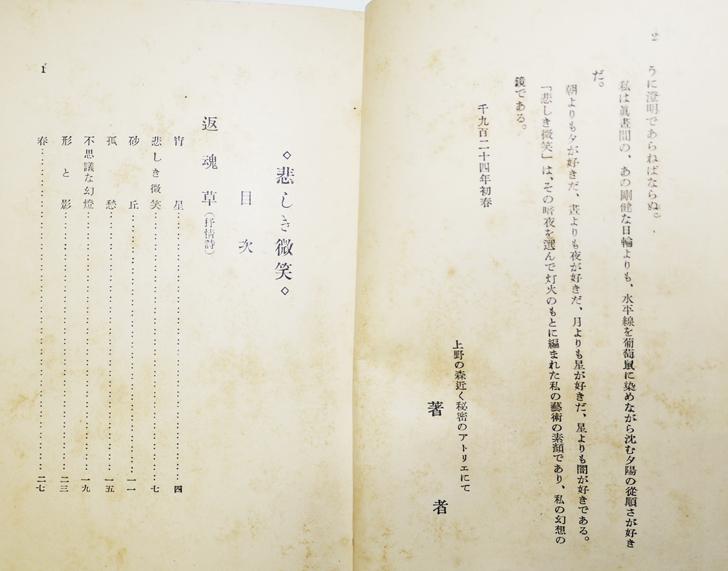 2
うに澄明であらねばならぬ。
私は眞晝間の、あの剛健な日輪よりも、水平線を葡萄鼠に染めながら沈む夕陽の從順さが好き
だ。
朝よりも夕が好きだ、晝よりも夜が好きだ、月よりも星が好きだ、星よりも闇が好きである。
「悲しき微笑」は、その暗夜を選んで灯火のもとに編まれた私の藝術の素顏であり、私の幻想の
鏡である。
千九百二十四年初春
上野の森近く秘密のアトリエにて
著者
◇悲しき微笑◇
目次
返魂草(抒情詩)
宵星…………………………四
悲しき微笑…………………………七
砂丘…………………………一一
孤愁…………………………一五
不思議な幻燈…………………………一九
形と影…………………………二三
春…………………………二七
1